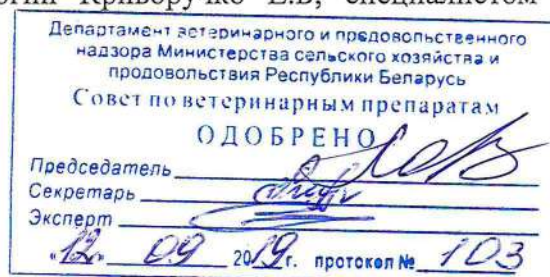 Криворучко Е.В, специалистом
Департамент ветеринарного и продовольственного
надзора Министерства сельского хозяйства и
продовольствия Республики Беларусь
Совет по ветеринарным препаратам
ОДОБРЕНО
Председатель
Секретарь
Эксперт
«12» 09 2019г. протокол № 103